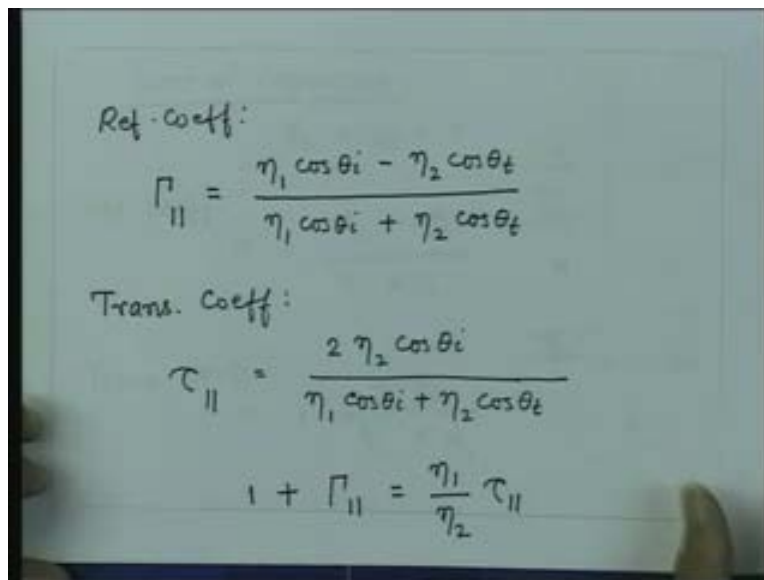 Ref. Coeff:
Γ_∥ = (η₁ cos θi − η₂ cos θt) / (η₁ cos θi + η₂ cos θt)
Trans. Coeff:
τ_∥ = (2 η₂ cos θi) / (η₁ cos θi + η₂ cos θt)
1 + Γ_∥ = (η₁ / η₂) τ_∥